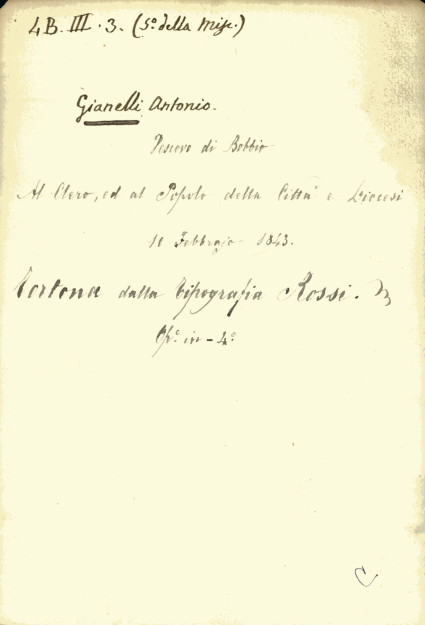 4B. III. 3. (5º della Misc.)
Gianelli Antonio.
Vescovo di Bobbio
Al Clero, ed al Popolo della Città e Diocesi
Febbrajo 1843.
Tortona dalla Tipografia Rossi.
in-4º
C